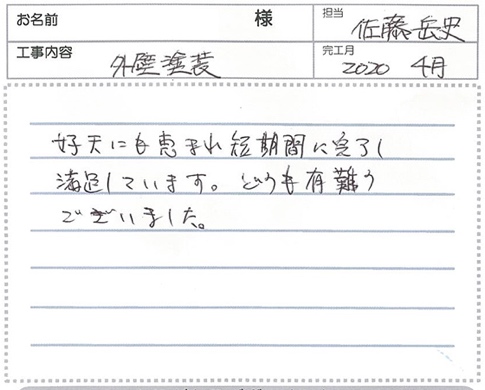 お名前 様 担当 佐藤岳史
工事内容 外壁塗装 完工月 2020 4月
好天にも恵まれ短期間に完了し
満足しています。どうも有難う
ございました。